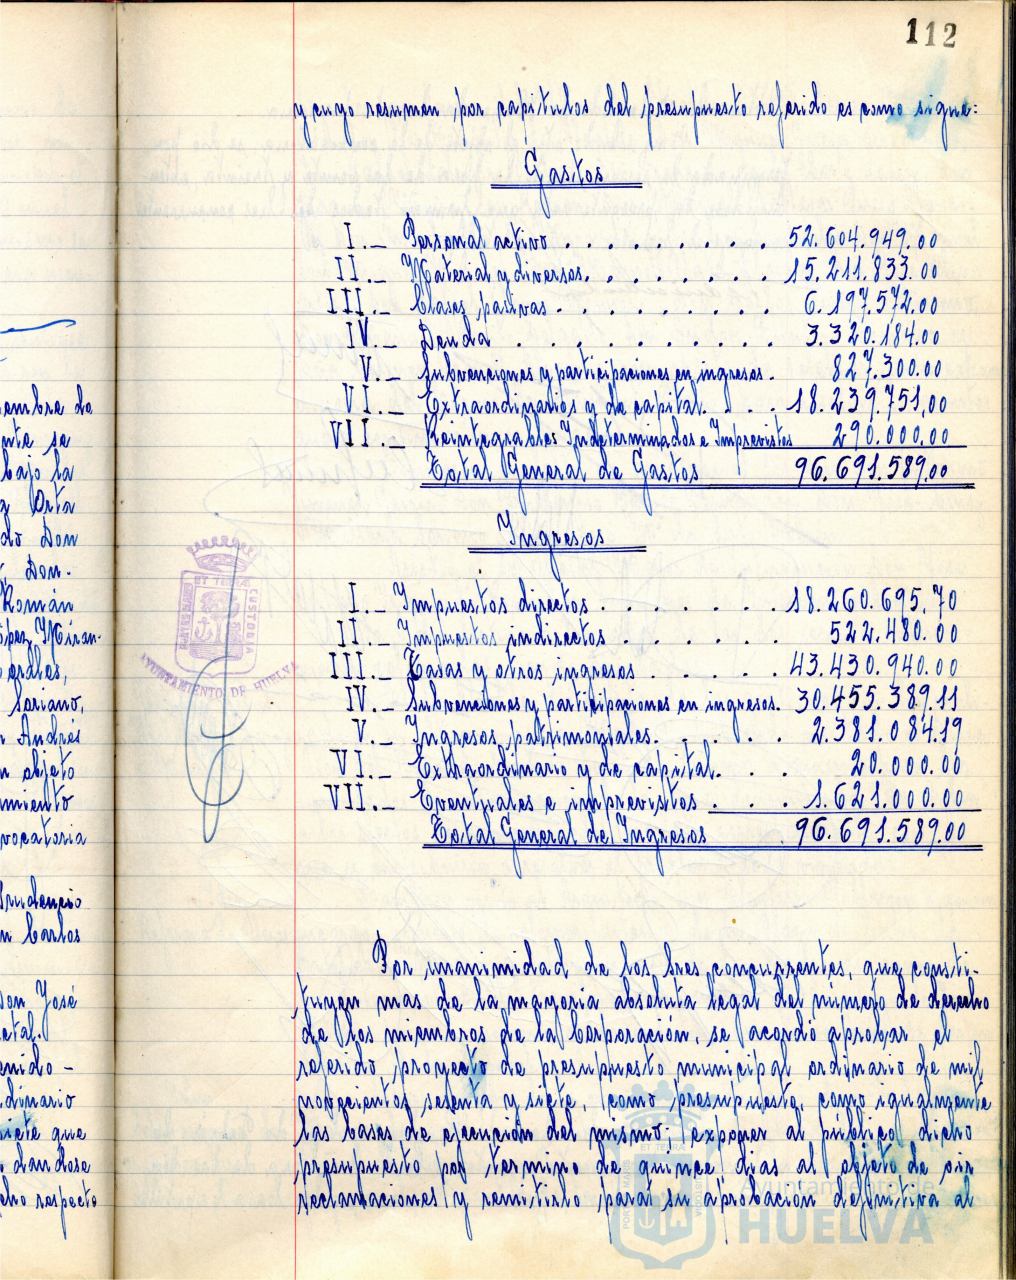 112
y cuyo resumen, por capitulos del presupuesto referido es como sigue:
Gastos
I._ Personal activo . . . . . . . . . 52.604.949.00
II._ Material y diversos. . . . . . . . 15.211.833.00
III._ Clases pasivas . . . . . . . . . 6.197.572.00
IV._ Deuda . . . . . . . . . . 3.320.184.00
V._ Subvenciones y participaciones en ingresos. 827.300.00
VI._ Extraordinarios y de capital. . . . 18.239.751,00
VII._ Reintegrables Indeterminados e Imprevistos 290.000.00
Total General de Gastos 96.691.589,00
Ingresos
I._ Impuestos directos . . . . . . . 18.260.695,70
II._ Impuestos indirectos . . . . . . 522.480.00
III._ Tasas y otros ingresos . . . . . 43.430.940.00
IV._ Subvenciones y participaciones en ingresos. 30.455.389.11
V._ Ingresos patrimoniales. . . . . 2.381.084.19
VI._ Extraordinario y de capital. . . . 20.000.00
VII._ Eventuales e imprevistos . . . . 1.621.000.00
Total General de Ingresos 96.691.589.00
Por unanimidad de los Sres concurrentes, que consti-
tuyen mas de la mayoria absoluta legal del número de derecho
de los miembros de la Corporación, se acordó aprobar el
referido proyecto de presupuesto municipal ordinario de mil
novecientos sesenta y siete, como presupuesto, como igualmente
las bases de ejecución del mismo; exponer al público dicho
presupuesto por termino de quince dias al objeto de oir
reclamaciones y remitirlo para su aprobación definitiva al
embre de
nte se
bajo la
Orta
do Don
Don.
Román
ópez, Miran-
ordles,
Soriano,
n Andrés
n objeto
miento
vocatoria
Prudencio
n Carlos
Don José
etal.
enido -
dinario
siete que
dandose
cho respecto
ET TERRA
CUSTODIA
AYUNTAMIENTO DE HUELVA
Ayuntamiento de
HUELVA